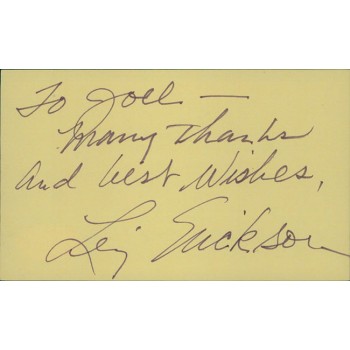 To Joel —
Many thanks
and best Wishes,
Leif Erickson